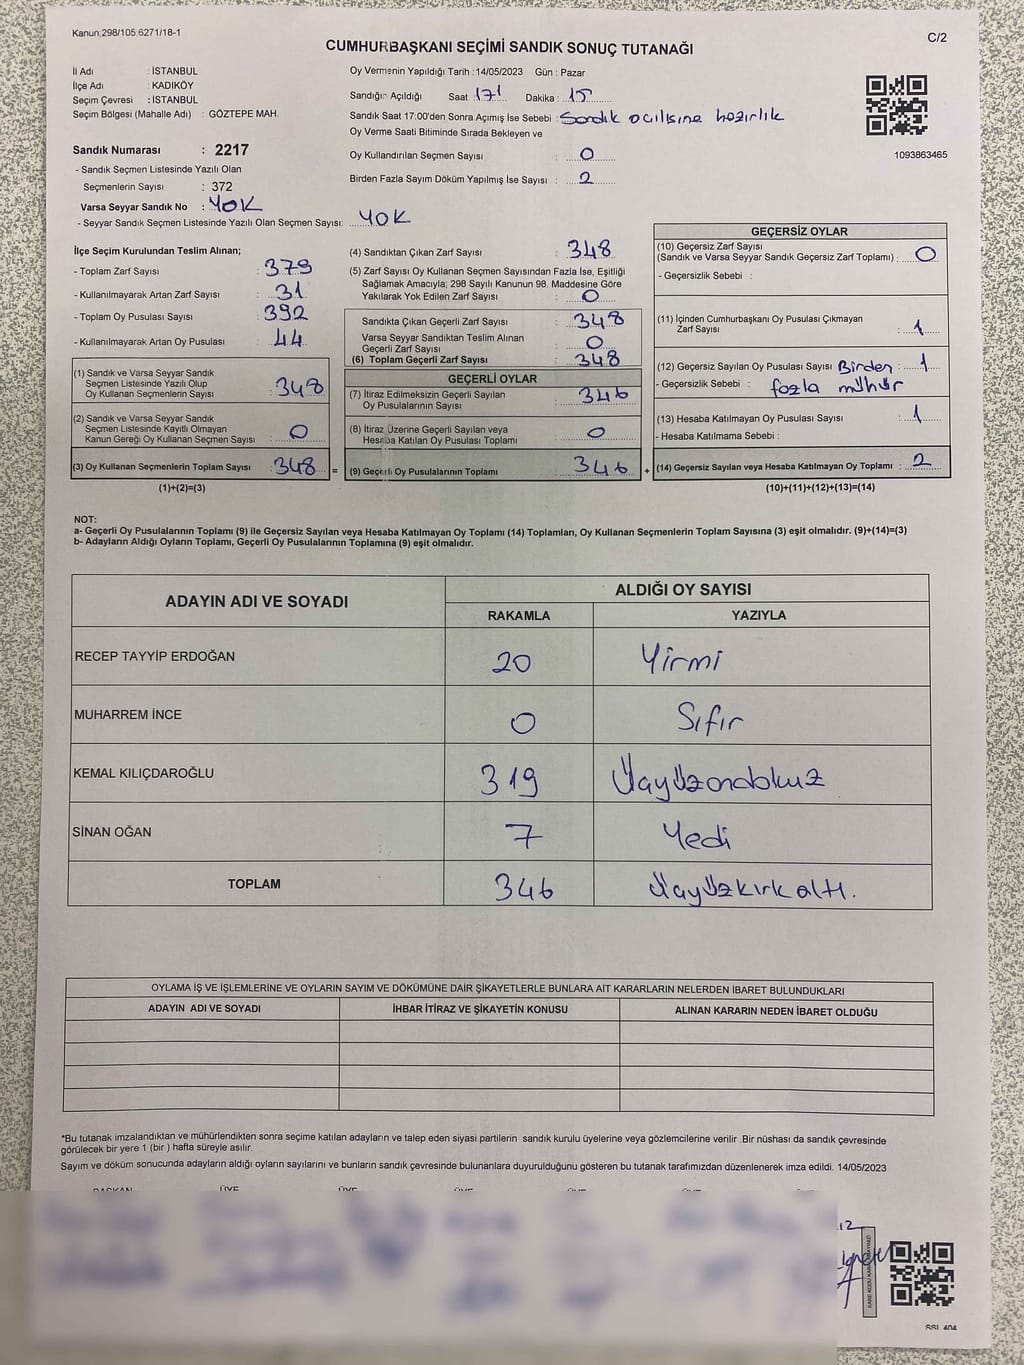 Kanun;298/105:6271/18-1
C/2
CUMHURBAŞKANI SEÇİMİ SANDIK SONUÇ TUTANAĞI
İl Adı : İSTANBUL
İlçe Adı : KADIKÖY
Seçim Çevresi : İSTANBUL
Seçim Bölgesi (Mahalle Adı) : GÖZTEPE MAH.
Sandık Numarası : 2217
- Sandık Seçmen Listesinde Yazılı Olan
Seçmenlerin Sayısı : 372
Varsa Seyyar Sandık No : YOK
- Seyyar Sandık Seçmen Listesinde Yazılı Olan Seçmen Sayısı: YOK
Oy Vermenin Yapıldığı Tarih : 14/05/2023 Gün : Pazar
Sandığın Açıldığı Saat : 17 Dakika : 15
Sandık Saat 17:00'den Sonra Açımış İse Sebebi : Sandık açılışına hazırlık
Oy Verme Saati Bitiminde Sırada Bekleyen ve
Oy Kullandırılan Seçmen Sayısı : 0
Birden Fazla Sayım Döküm Yapılmış İse Sayısı : 2
1093863465
İlçe Seçim Kurulundan Teslim Alınan;
- Toplam Zarf Sayısı : 379
- Kullanılmayarak Artan Zarf Sayısı : 31
- Toplam Oy Pusulası Sayısı : 392
- Kullanılmayarak Artan Oy Pusulası : 44
(1) Sandık ve Varsa Seyyar Sandık
Seçmen Listesinde Yazılı Olup
Oy Kullanan Seçmenlerin Sayısı : 348
(2) Sandık ve Varsa Seyyar Sandık
Seçmen Listesinde Kayıtlı Olmayan
Kanun Gereği Oy Kullanan Seçmen Sayısı : 0
(3) Oy Kullanan Seçmenlerin Toplam Sayısı : 348 =
(1)+(2)=(3)
(4) Sandıktan Çıkan Zarf Sayısı : 348
(5) Zarf Sayısı Oy Kullanan Seçmen Sayısından Fazla İse, Eşitliği
Sağlamak Amacıyla; 298 Sayılı Kanunun 98. Maddesine Göre
Yakılarak Yok Edilen Zarf Sayısı : 0
Sandıkta Çıkan Geçerli Zarf Sayısı : 348
Varsa Seyyar Sandıktan Teslim Alınan
Geçerli Zarf Sayısı : 0
(6) Toplam Geçerli Zarf Sayısı : 348
GEÇERLİ OYLAR
(7) İtiraz Edilmeksizin Geçerli Sayılan
Oy Pusulalarının Sayısı : 346
(8) İtiraz Üzerine Geçerli Sayılan veya
Hesaba Katılan Oy Pusulası Toplamı : 0
(9) Geçerli Oy Pusulalarının Toplamı : 346 +
GEÇERSİZ OYLAR
(10) Geçersiz Zarf Sayısı
(Sandık ve Varsa Seyyar Sandık Geçersiz Zarf Toplamı) : 0
- Geçersizlik Sebebi :
(11) İçinden Cumhurbaşkanı Oy Pusulası Çıkmayan
Zarf Sayısı : 1
(12) Geçersiz Sayılan Oy Pusulası Sayısı Birden : 1
- Geçersizlik Sebebi : fazla mühür
(13) Hesaba Katılmayan Oy Pusulası Sayısı : 1
- Hesaba Katılmama Sebebi :
(14) Geçersiz Sayılan veya Hesaba Katılmayan Oy Toplamı : 2
(10)+(11)+(12)+(13)=(14)
NOT:
a- Geçerli Oy Pusulalarının Toplamı (9) ile Geçersiz Sayılan veya Hesaba Katılmayan Oy Toplamı (14) Toplamları, Oy Kullanan Seçmenlerin Toplam Sayısına (3) eşit olmalıdır. (9)+(14)=(3)
b- Adayların Aldığı Oyların Toplamı, Geçerli Oy Pusulalarının Toplamına (9) eşit olmalıdır.
ADAYIN ADI VE SOYADI
ALDIĞI OY SAYISI
RAKAMLA YAZIYLA
RECEP TAYYİP ERDOĞAN 20 Yirmi
MUHARREM İNCE 0 Sıfır
KEMAL KILIÇDAROĞLU 319 Üçyüzondokuz
SİNAN OĞAN 7 Yedi
TOPLAM 346 Üçyüzkırkaltı.
OYLAMA İŞ VE İŞLEMLERİNE VE OYLARIN SAYIM VE DÖKÜMÜNE DAİR ŞİKAYETLERLE BUNLARA AİT KARARLARIN NELERDEN İBARET BULUNDUKLARI
ADAYIN ADI VE SOYADI İHBAR İTİRAZ VE ŞİKAYETİN KONUSU ALINAN KARARIN NEDEN İBARET OLDUĞU
*Bu tutanak imzalandıktan ve mühürlendikten sonra seçime katılan adayların ve talep eden siyasi partilerin sandık kurulu üyelerine veya gözlemcilerine verilir .Bir nüshası da sandık çevresinde
görülecek bir yere 1 (bir ) hafta süreyle asılır.
Sayım ve döküm sonucunda adayların aldığı oyların sayılarını ve bunların sandık çevresinde bulunanlara duyurulduğunu gösteren bu tutanak tarafımızdan düzenlenerek imza edildi. 14/05/2023
BAŞKAN ÜYE ÜYE ÜYE ÜYE ÜYE ÜYE